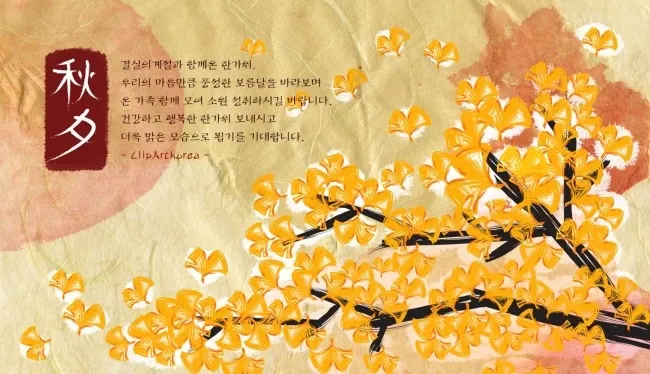 秋夕
결실의계절과 함께온 한가위.
우리의 마음만큼 풍성한 보름달을 바라보며
온 가족 함께 모여 소원 성취하시길 바랍니다.
건강하고 행복한 한가위 보내시고
더욱 밝은 모습으로 뵙기를 기대합니다.
- ClipArtkorea -